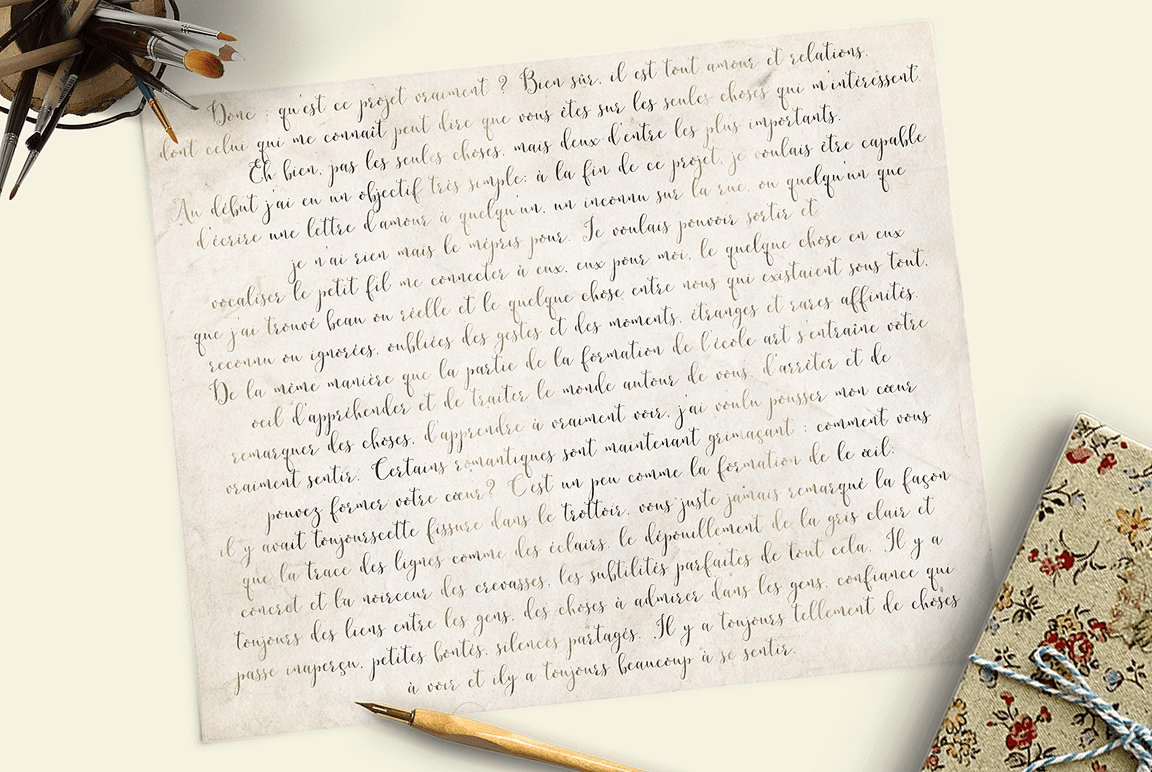 Donc : qu'est ce projet vraiment ? Bien sûr, il est tout amour et relations,
dont celui qui me connait peut dire que vous êtes sur les seules choses qui m'intéressent.
Eh bien, pas les seules choses, mais deux d'entre les plus importants.
Au début j'ai eu un objectif très simple: à la fin de ce projet, je voulais être capable
d'écrire une lettre d'amour à quelqu'un, un inconnu sur la rue, ou quelqu'un que
je n'ai rien mais le mépris pour. Je voulais pouvoir sortir et
vocaliser le petit fil me connecter à eux, eux pour moi, le quelque chose en eux
que j'ai trouvé beau ou réelle et le quelque chose entre nous qui existaient sous tout,
reconnu ou ignorées, oubliées des gestes et des moments, étranges et rares affinités.
De la même manière que la partie de la formation de l'école art s'entraine votre
oeil d'appréhender et de traiter le monde autour de vous, d'arrêter et de
remarquer des choses, d'apprendre à vraiment voir, j'ai voulu pousser mon cœur
vraiment sentir. Certains romantiques sont maintenant grimaçant : comment vous
pouvez former votre cœur? C'est un peu comme la formation de le œil:
il y avait toujourscette fissure dans le trottoir, vous juste jamais remarqué la façon
que la trace des lignes comme des éclairs, le dépouillement de la gris clair et
concret et la noirceur des crevasses, les subtilités parfaites de tout cela. Il y a
toujours des liens entre les gens, des choses à admirer dans les gens, confiance qui
passe inaperçu, petites bontés, silences partagés. Il y a toujours tellement de choses
à voir et ily a toujours beaucoup à se sentir.